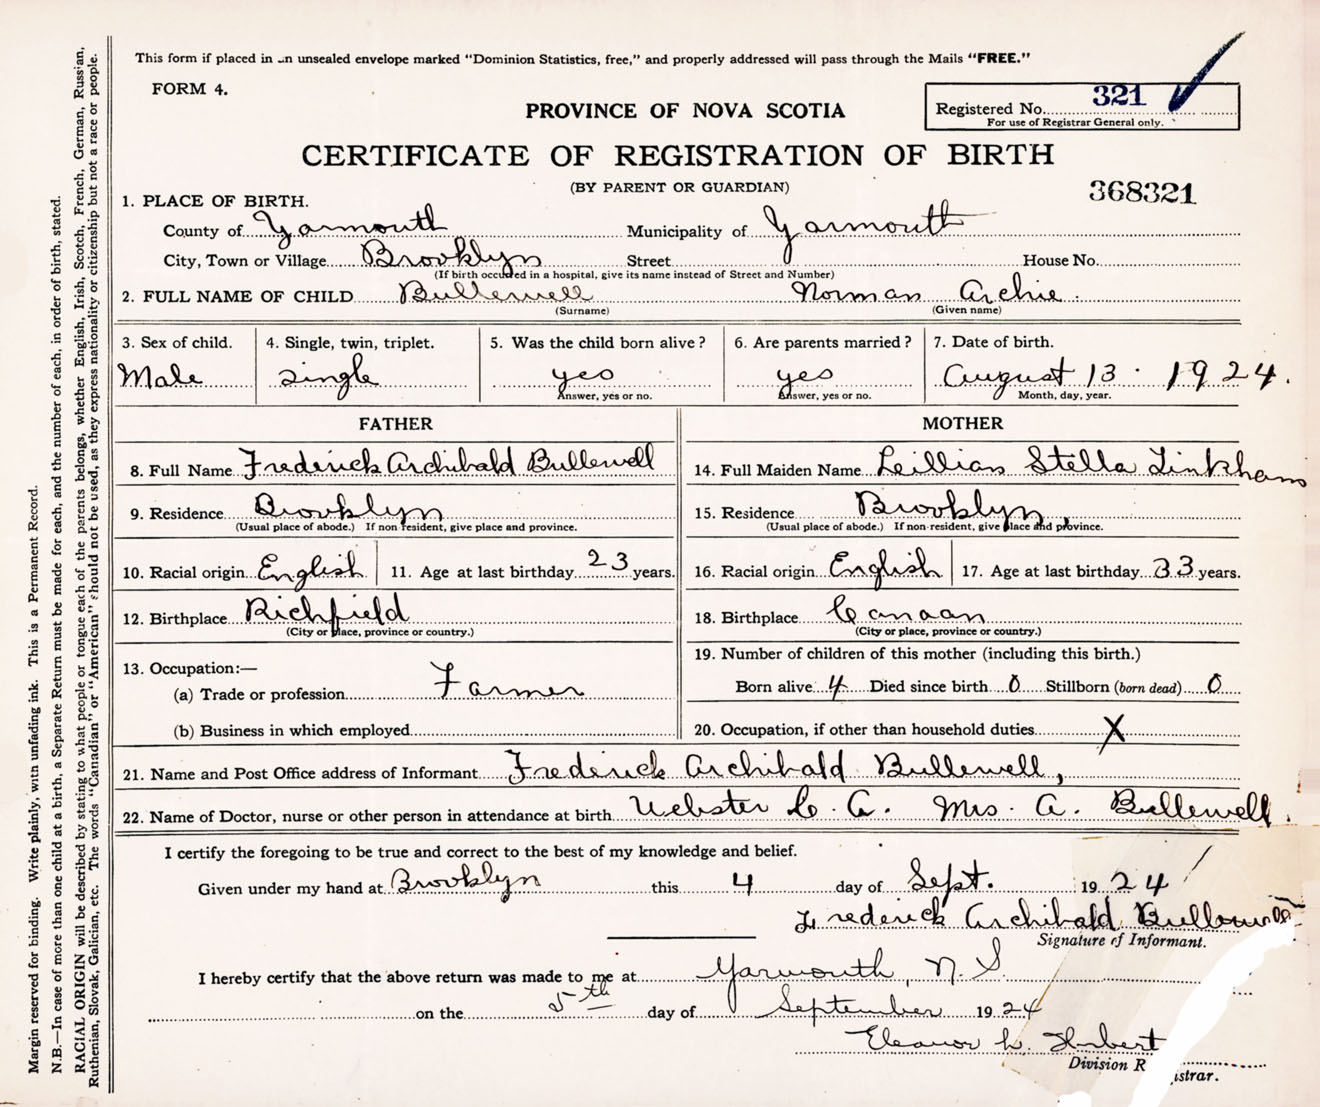 This form if placed in an unsealed envelope marked "Dominion Statistics, free," and properly addressed will pass through the Mails "FREE."
FORM 4.
Registered No. 321
For use of Registrar General only.
PROVINCE OF NOVA SCOTIA
CERTIFICATE OF REGISTRATION OF BIRTH
(BY PARENT OR GUARDIAN)
368321
1. PLACE OF BIRTH.
County of Yarmouth Municipality of Yarmouth
City, Town or Village Brooklyn Street House No.
(If birth occurred in a hospital, give its name instead of Street and Number)
2. FULL NAME OF CHILD Bullerwell Norman Archie.
(Surname) (Given name)
3. Sex of child. 4. Single, twin, triplet. 5. Was the child born alive? 6. Are parents married? 7. Date of birth.
Male single yes yes August 13 · 1924.
Answer, yes or no. Answer, yes or no. Month, day, year.
FATHER MOTHER
8. Full Name Frederick Archibald Bullerwell 14. Full Maiden Name Leillian Stella Linkham
9. Residence Brooklyn 15. Residence Brooklyn,
(Usual place of abode.) If non resident, give place and province. (Usual place of abode.) If non-resident, give place and province.
10. Racial origin English 11. Age at last birthday 23 years. 16. Racial origin English 17. Age at last birthday 33 years.
12. Birthplace Richfield 18. Birthplace Canaan
(City or place, province or country.) (City or place, province or country.)
13. Occupation:— 19. Number of children of this mother (including this birth.)
(a) Trade or profession Farmer Born alive 4 Died since birth 0 Stillborn (born dead) 0
(b) Business in which employed 20. Occupation, if other than household duties X
21. Name and Post Office address of Informant Frederick Archibald Bullerwell,
22. Name of Doctor, nurse or other person in attendance at birth Webster C. A. Mrs. A. Bullerwell.
I certify the foregoing to be true and correct to the best of my knowledge and belief.
Given under my hand at Brooklyn this 4 day of Sept. 1924
Frederick Archibald Bullerwell
Signature of Informant.
I hereby certify that the above return was made to me at Yarmouth, N. S
on the 5th day of September 1924
Eleanor L. Herbert
Division R istrar.
Margin reserved for binding. Write plainly, with unfading ink. This is a Permanent Record.
N.B.—In case of more than one child at a birth, a Separate Return must be made for each, and the number of each, in order of birth, stated.
RACIAL ORIGIN will be described by stating to what people or tongue each of the parents belongs, whether English, Irish, Scotch, French, German, Russian,
Ruthenian, Slovak, Galician, etc. The words "Canadian" or "American" should not be used, as they express nationality or citizenship but not a race or people.